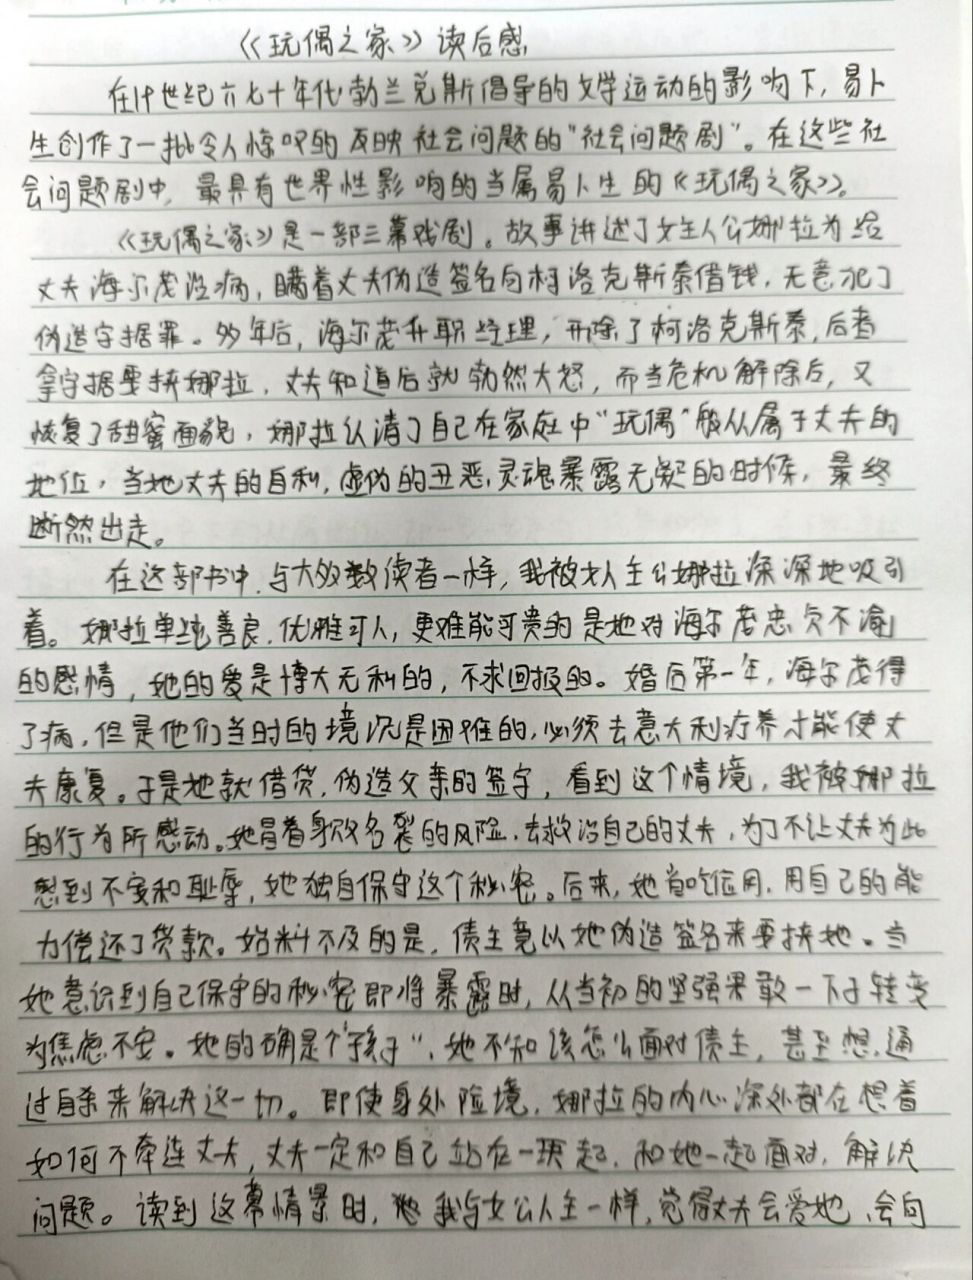 《玩偶之家》读后感
在19世纪六七十年代勃兰克斯倡导的文学运动的影响下,易卜
生创作了一批令人惊叹的反映社会问题的“社会问题剧”。在这些社
会问题剧中,最具有世界性影响的当属易卜生的《玩偶之家》。
《玩偶之家》是一部三幕戏剧。故事讲述了女主人公娜拉为给
丈夫海尔茂治病,瞒着丈夫伪造签名向柯洛克斯泰借钱,无意犯了
伪造字据罪。多年后,海尔茂升职经理,开除了柯洛克斯泰,后者
拿字据要挟娜拉,丈夫知道后就勃然大怒,而当危机解除后,又
恢复了甜蜜面貌,娜拉认清了自己在家庭中“玩偶”般从属于丈夫的
地位,当她丈夫的自私,虚伪的丑恶灵魂暴露无疑的时候,最终
断然出走。
在这部书中,与大多数读者一样,我被女人主公娜拉深深地吸引
着。娜拉单纯善良,优雅可人,更难能可贵的是她对海尔茂忠贞不渝
的感情,她的爱是博大无私的,不求回报的。婚后第一年,海尔茂得
了病,但是他们当时的境况是困难的,必须去意大利疗养才能使丈
夫康复。于是她就借贷,伪造父亲的签字,看到这个情境,我被娜拉
的行为所感动。她冒着身败名裂的风险,去救治自己的丈夫,为了不让丈夫为此
感到不安和耻辱,她独自保守这个秘密。后来,她省吃俭用,用自己的能
力偿还了贷款。始料不及的是,债主竟以她伪造签名来要挟她。当
她意识到自己保守的秘密即将暴露时,从当初的坚强果敢一下子转变
为焦虑不安。她的确是个“孩子”,她不知该怎么面对债主,甚至想通
过自杀来解决这一切。即使身处险境,娜拉的内心深处都在想着
如何不牵连丈夫,丈夫一定和自己站在一起,和她一起面对,解决
问题。读到这幕情景时,我与女公人主一样,觉得丈夫会爱她,会向